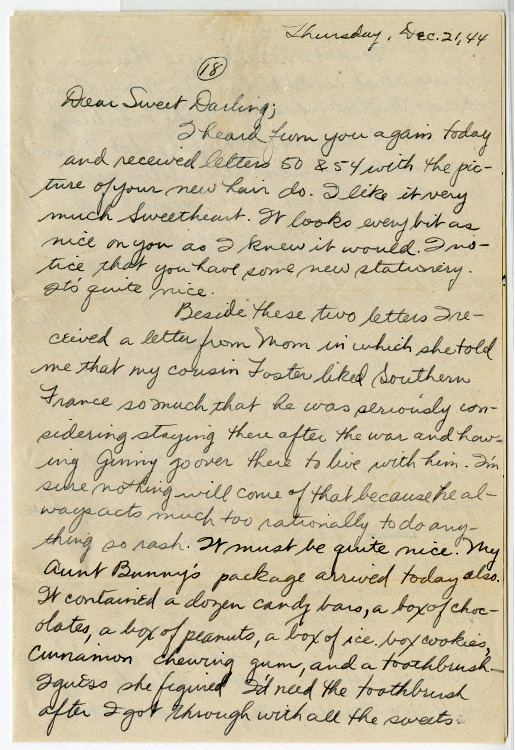 Thursday, Dec. 21, 44
18
Dear Sweet Darling;
I heard from you again today
and received letters 50 & 54 with the pic-
ture of your new hair do. I like it very
much Sweetheart. It looks every bit as
nice on you as I knew it would. I no-
tice that you have some new stationery.
It's quite nice.
Beside these two letters I re-
ceived a letter from Mom in which she told
me that my cousin Foster liked Southern
France so much that he was seriously con-
sidering staying there after the war and hav-
ing Ginny go over there to live with him. I'm
sure nothing will come of that because he al-
ways acts much too rationally to do any-
thing so rash. It must be quite nice. My
Aunt Bunny's package arrived today also.
It contained a dozen candy bars, a box of choc-
olates, a box of peanuts, a box of ice box cookies,
cinnamon chewing gum, and a toothbrush—
I guess she figured I'd need the toothbrush
after I got through with all the sweets.